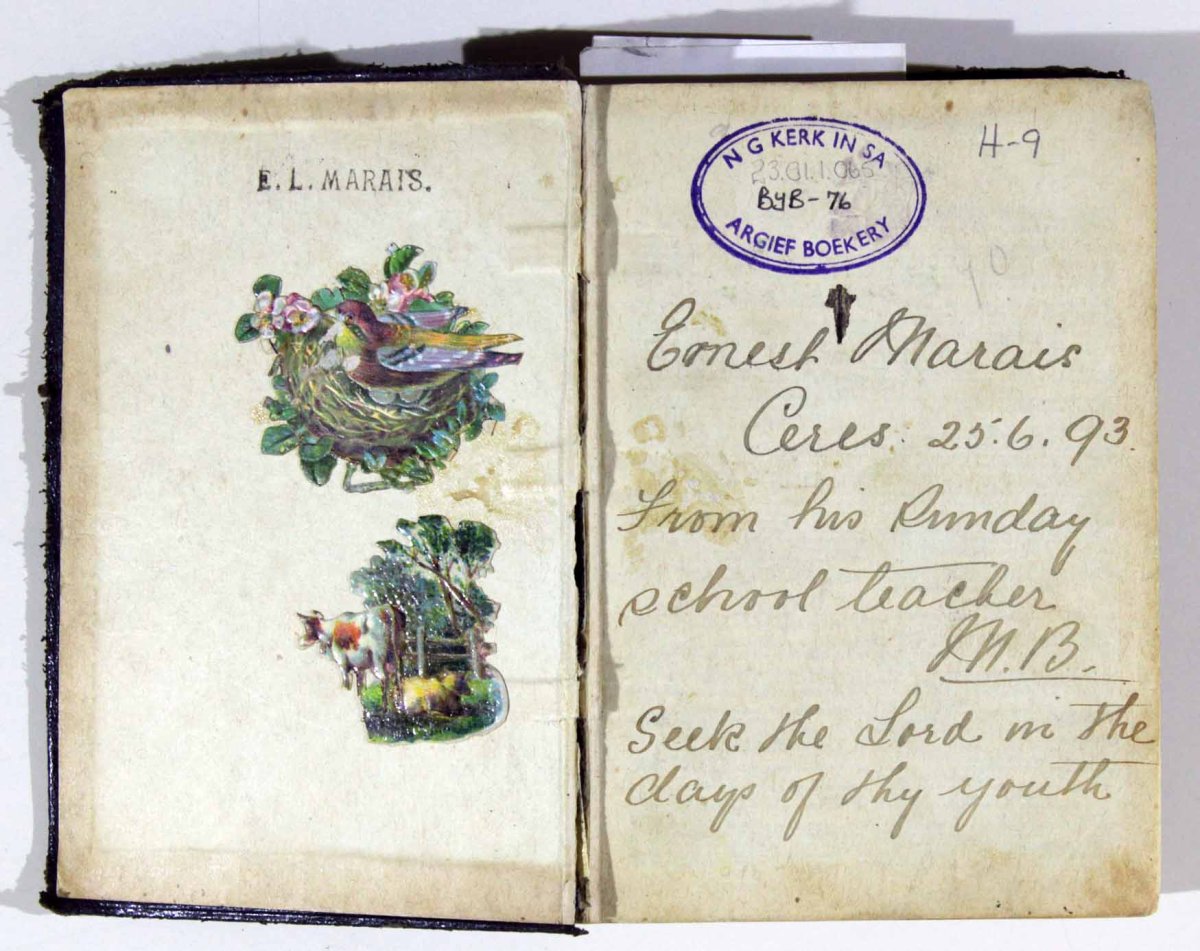 E. L. MARAIS.
N G KERK IN SA
ByB-76
ARGIEF BOEKERY
H-9
Ernest Marais
Ceres. 25.6.93.
From his Sunday
school teacher
M.B.
Seek the Lord in the
days of thy youth